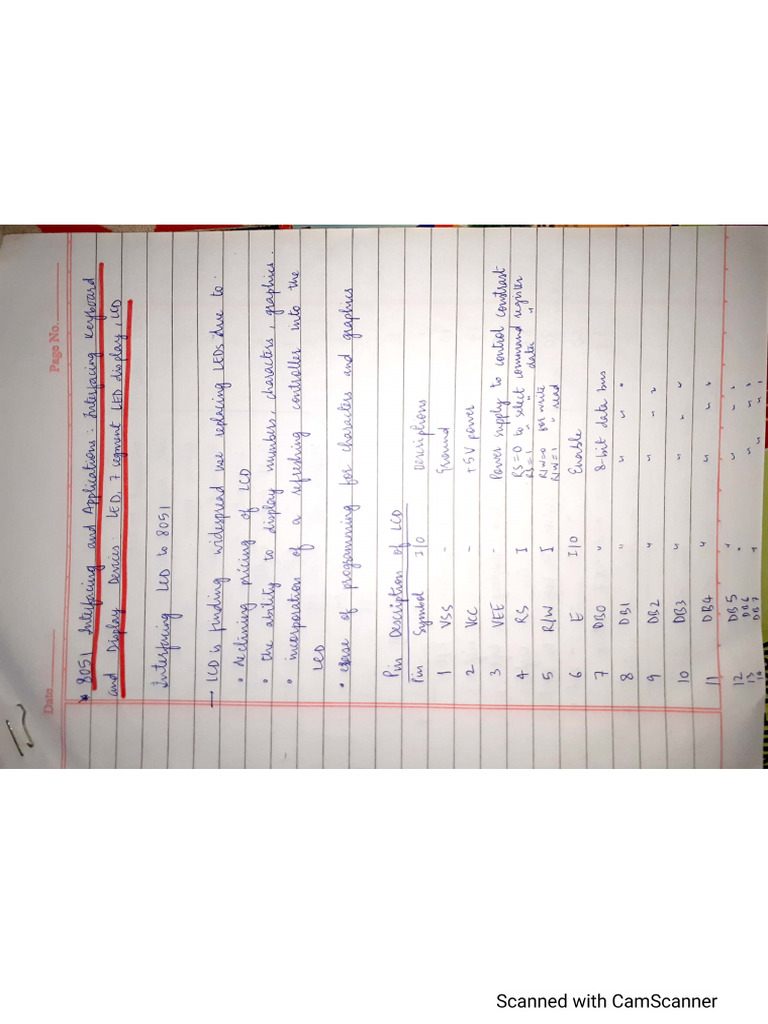 Date
Page No.
* 8051 Interfacing and Applications: Interfacing Keyboard
and Display Devices: LED, 7 segment LED display, LCD
Interfacing LCD to 8051
→ LCD is finding widespread use replacing LEDs due to:
• declining pricing of LCD
• the ability to display numbers, characters, graphics.
• incorporation of a refreshing controller into the
LCD
• ease of programming for characters and graphics
Pin Description of LCD
Pin Symbol I/O Descriptions
1 VSS - Ground
2 VCC - +5V power
3 VEE - Power supply to control constrast
4 RS I RS=0 to select command register
RS=1 " " data "
5 R/W I R/W=0 for write
R/W=1 " read
6 E I/O Enable
7 DB0 " 8-bit data bus
8 DB1 " " " "
9 DB2 " " " "
10 DB3 " " " "
11 DB4 " " " "
12 DB5 " " " "
13 DB6 " " " "
14 DB7 " " " "
Scanned with CamScanner